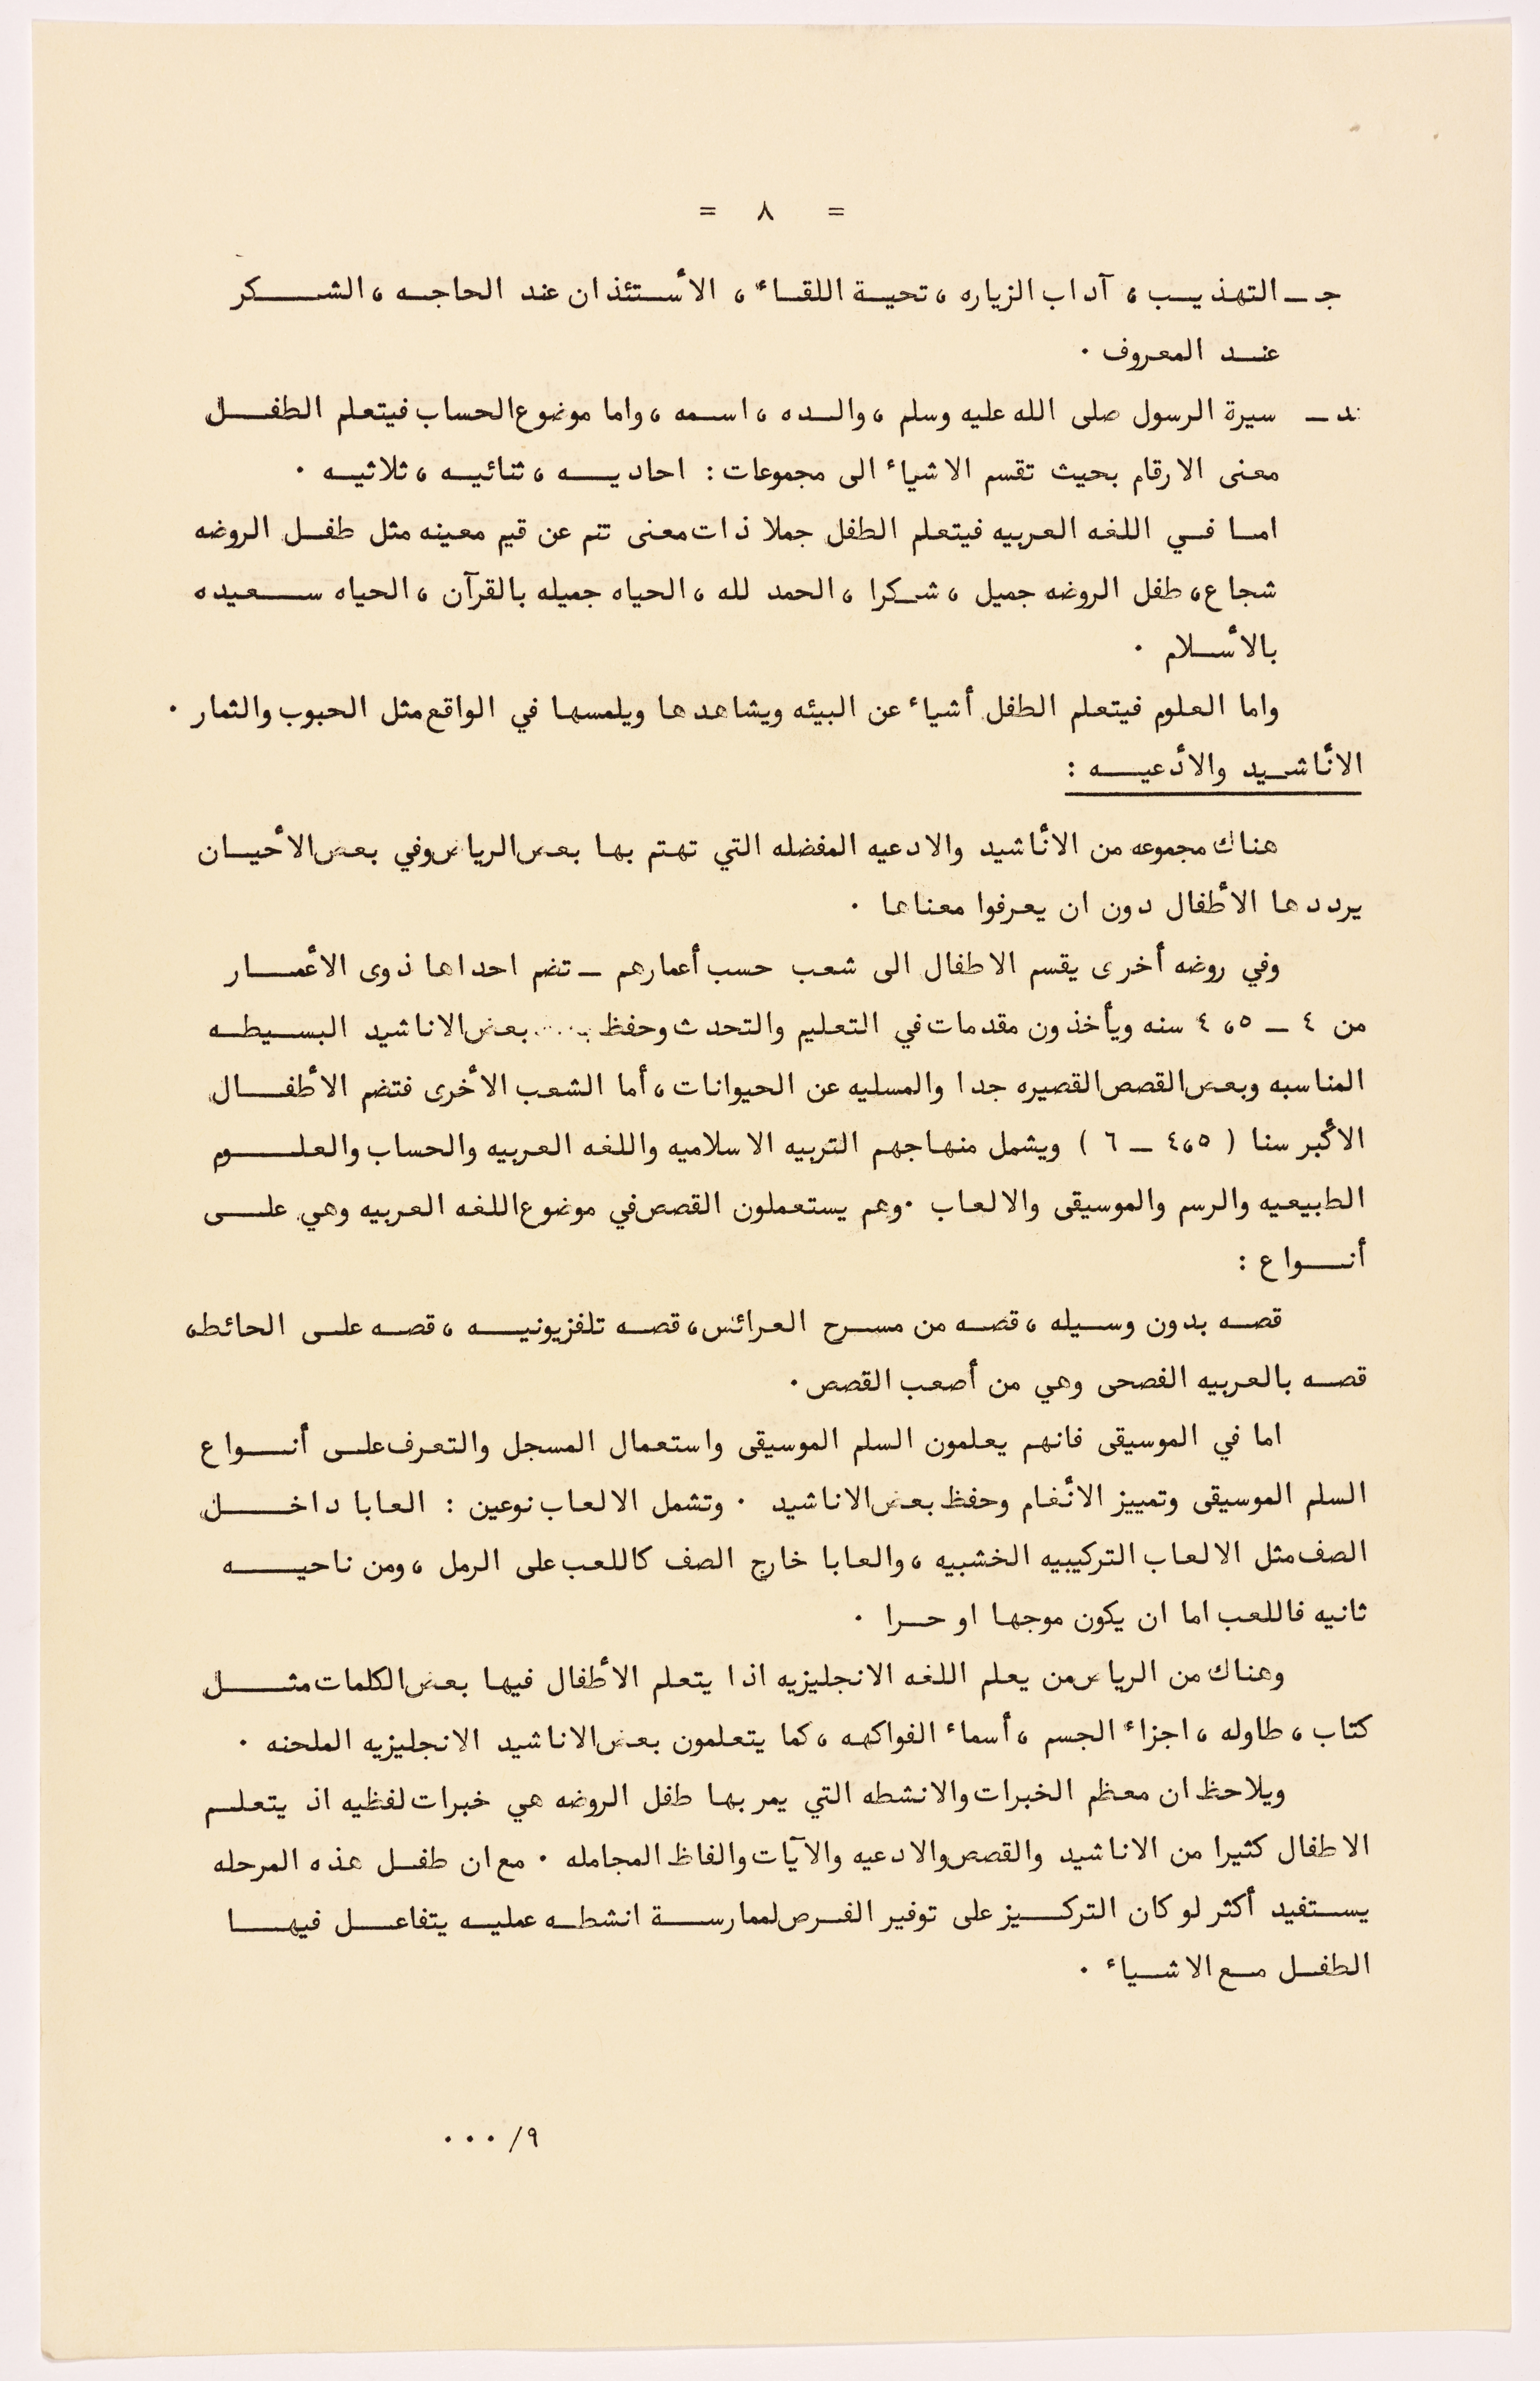 = ٨ =
جـ ـ التهذيب ، آداب الزياره ، تحية اللقاء ، الأستئذان عند الحاجه ، الشكر
عند المعروف .
د ـ سيرة الرسول صلى الله عليه وسلم ، والده ، اسمه ، واما موضوع الحساب فيتعلم الطفل
معنى الارقام بحيث تقسم الاشياء الى مجموعات : احاديه ، ثنائيه ، ثلاثيه .
اما في اللغه العربيه فيتعلم الطفل جملا ذات معنى تتم عن قيم معينه مثل طفل الروضه
شجاع ، طفل الروضه جميل ، شكرا ، الحمد لله ، الحياه جميله بالقرآن ، الحياه سعيده
بالأسلام .
واما العلوم فيتعلم الطفل أشياء عن البيئه ويشاهدها ويلمسها في الواقع مثل الحبوب والثمار .
الأناشيد والأدعيه :
هناك مجموعه من الأناشيد والادعيه المفضله التي تهتم بها بعض الرياض وفي بعض الأحيان
يرددها الأطفال دون ان يعرفوا معناها .
وفي روضه أخرى يقسم الاطفال الى شعب حسب أعمارهم ـ تضم احداها ذوى الأعمار
من ٤ ـ ٤،٥ سنه ويأخذون مقدمات في التعليم والتحدث وحفظ بعض الاناشيد البسيطه
المناسبه وبعض القصص القصيره جدا والمسليه عن الحيوانات ، أما الشعب الأخرى فتضم الأطفال
الأكبر سنا ( ٤،٥ ـ ٦ ) ويشمل منهاجهم التربيه الاسلاميه واللغه العربيه والحساب والعلوم
الطبيعيه والرسم والموسيقى والالعاب . وهم يستعملون القصص في موضوع اللغه العربيه وهي على
أنواع :
قصه بدون وسيله ، قصه من مسرح العرائس ، قصه تلفزيونيه ، قصه على الحائط ،
قصه بالعربيه الفصحى وهي من أصعب القصص .
اما في الموسيقى فانهم يعلمون السلم الموسيقى واستعمال المسجل والتعرف على أنواع
السلم الموسيقى وتمييز الأنغام وحفظ بعض الاناشيد . وتشمل الالعاب نوعين : العابا داخل
الصف مثل الالعاب التركيبيه الخشبيه ، والعابا خارج الصف كاللعب على الرمل ، ومن ناحيه
ثانيه فاللعب اما ان يكون موجها او حرا .
وهناك من الرياض من يعلم اللغه الانجليزيه اذا يتعلم الأطفال فيها بعض الكلمات مثل
كتاب ، طاوله ، اجزاء الجسم ، أسماء الفواكهه ، كما يتعلمون بعض الاناشيد الانجليزيه الملحنه .
ويلاحظ ان معظم الخبرات والانشطه التي يمر بها طفل الروضه هي خبرات لفظيه اذ يتعلم
الاطفال كثيرا من الاناشيد والقصص والادعيه والآيات والفاظ المجامله . مع ان طفل هذه المرحله
يستفيد أكثر لو كان التركيز على توفير الفرص لممارسة انشطه عمليه يتفاعل فيها
الطفل مع الاشياء .
٩/ ...